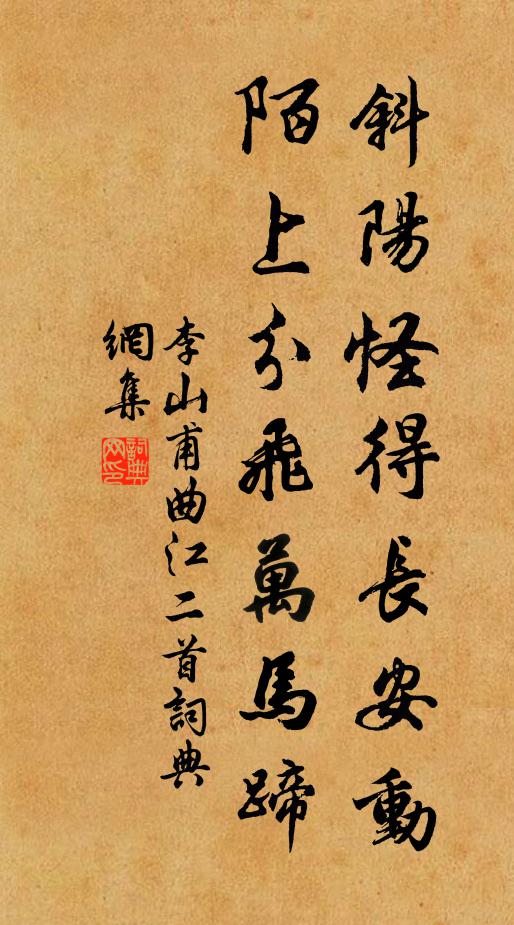 斜陽怪得長安動
陌上分飛萬馬蹄
李山甫曲江二首詞典
網集
詞典
网印